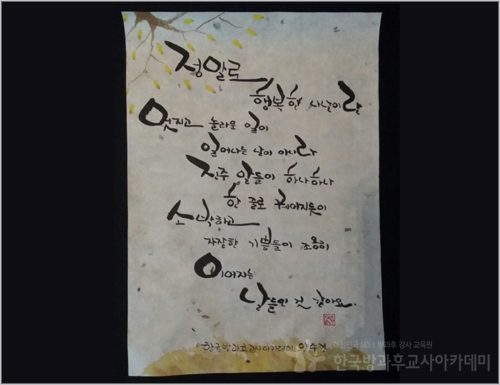 정말로
행복한 나날이란
멋지고 놀라운 일이
일어나는 날이 아니라
진주 알들이 하나하나
한 줄로 꿰어지듯이
소박하고
자잘한 기쁨들이 조용히
이어지는
날들인 것 같아요.
한국방과후교사아카데미
한국방과후교사아카데미